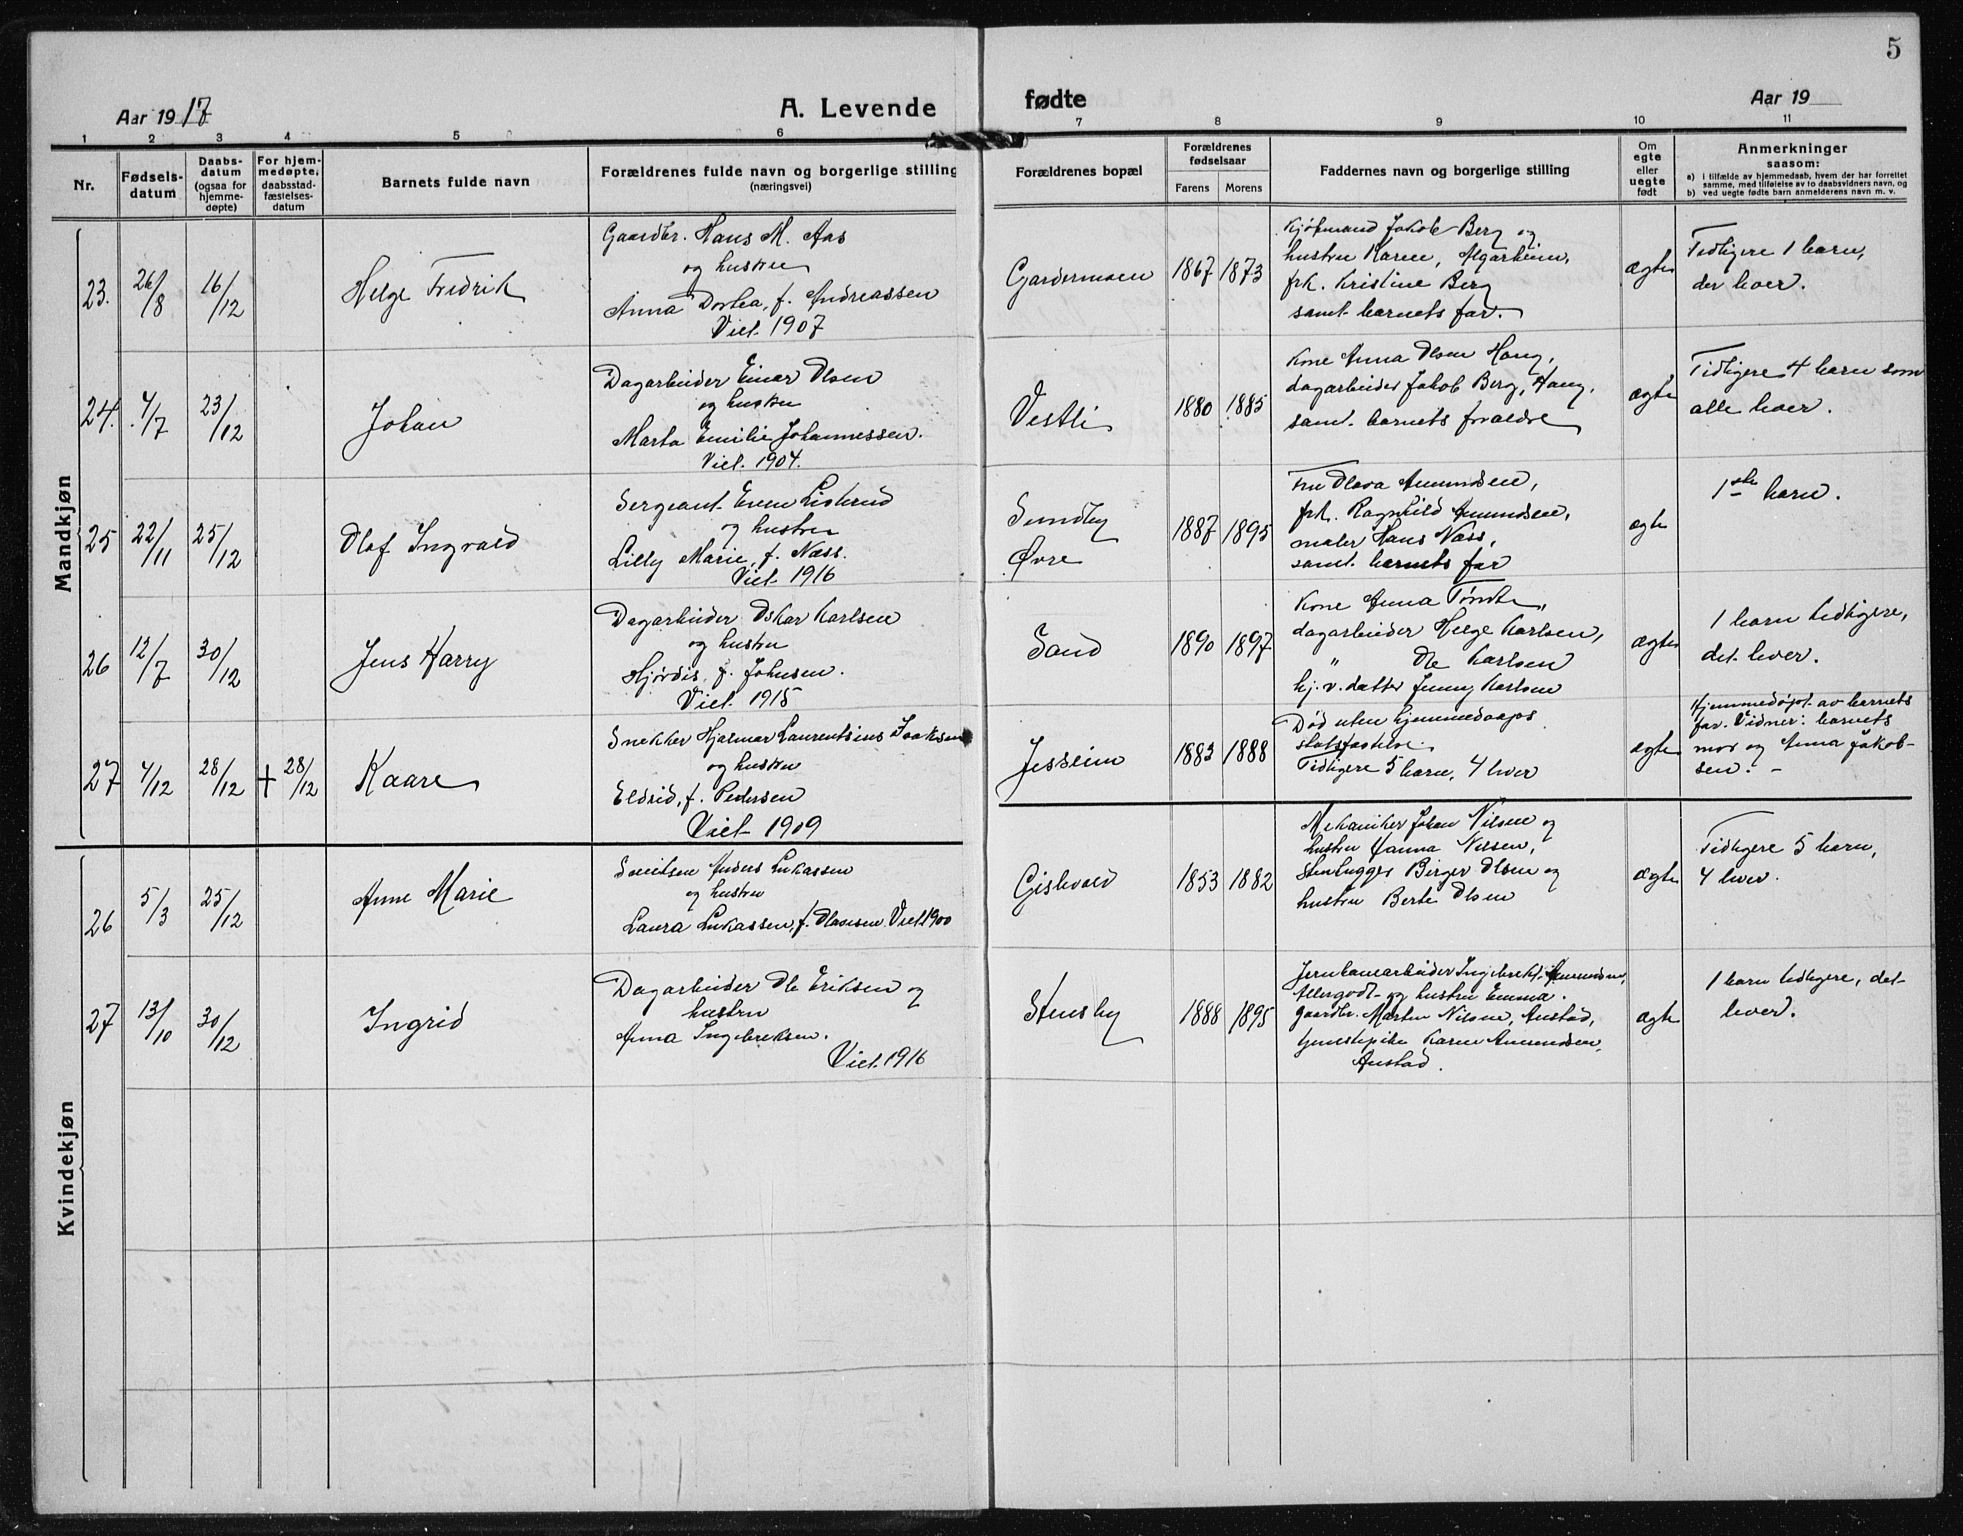 5
Aar 1917
A. Levende
fødte
Aar 19
1 2 3 4 5 6 7 8 9 10 11
Nr.
Fødsels-
datum
Daabs-
datum
(ogsaa for
hjemme-
døpte)
For hjem-
medøpte,
daabsstad-
fæstelses-
datum
Barnets fulde navn
Forældrenes fulde navn og borgerlige stilling
(næringsvei)
Forældrenes bopæl
Forældrenes
fødselsaar
Farens
Morens
Faddernes navn og borgerlige stilling
Om
egte
eller
uegte
født
Anmerkninger
saasom:
a) i tilfælde av hjemmedaab, hvem der har forrettet
samme, med tilføielse av to daabsvidners navn, og
b) ved uegte fødte barn anmelderens navn m. v.
Mandkjøn
23.
26/8
16/12
Helge Fredrik
Gaardbr. Hans M. Aas
og hustru
Anna Dorthea, f. Andreassen
Viet 1907
Gardermoen
1867
1873
Kjøpmand Jakob Berg og
hustru Karen, Algarheim,
frk. Kristine Berg
samt barnets far.
ægte
Tidligere 1 barn,
der lever.
24.
4/7
23/12
Johan
Dagarbeider Einar Olsen
og hustru
Marta Emilie Johannessen.
Viet 1904.
Vestli
1880
1885
Kone Anna Olsen Haug,
dagarbeider Jakob Berg, Haug,
samt barnets forældre
ægte
Tidligere 4 barn som
alle lever.
25
22/11
25/12
Olaf Ingvald
Sergeant Even
og hustru
Lilly Marie, f. Næss.
Viet 1916
Sundby
Øvre
1887
1895
Fru Olava Amundsen,
frk. Ragnhild Amundsen,
maler Hans Næss,
samt barnets far
ægte
1ste barn.
26
12/7
30/12
Jens Harry
Dagarbeider Oskar Karlsen
og hustru
Hjørdis, f. Johnsen.
Viet 1915
Sand
1890
1897
Kone Anna
dagarbeider Helge Karlsen,
" Ole Karlsen
hj.v. datter Jenny Karlsen
ægte
1 barn tidligere,
det lever.
27
4/12
28/12
+ 28/12
Kaare
Snekker Hjalmar Laurentsius Isaksen
og hustru
Eldrid, f. Pedersen
Viet 1909
Jessheim
1883
1888
Død uten hjemmedaaps
Tidligere 5 barn, 4 lever
ægte
Hjemmedøpt av barnets
far. Vidner: barnets
mor og Anna Jakob-
sen. -
Kvindekjøn
26
5/3
25/12
Anne Marie
Anders Lukassen
og hustru
Laura Lukassen, f. Olavesen Viet 1900
1853
1882
Mekaniker Johan Nilsen og
hustru Hanna Nilsen,
Stenhugger Birger Olsen og
hustru Berte Olsen
ægte
Tidligere 5 barn,
4 lever.
27
13/10
30/12
Ingrid
Dagarbeider Ole Eriksen og
hustru
Anna Ingebretsen.
Viet 1916
Stensby
1888
1895
Jernbanearbeider Ingebrekt Amundsen,
Allergodt og hustru Emma.
gaardbr. Martin Nilsen, Austad,
tjenestepike Karen Amundsen,
Austad.
ægte
1 barn tidligere, det
lever.